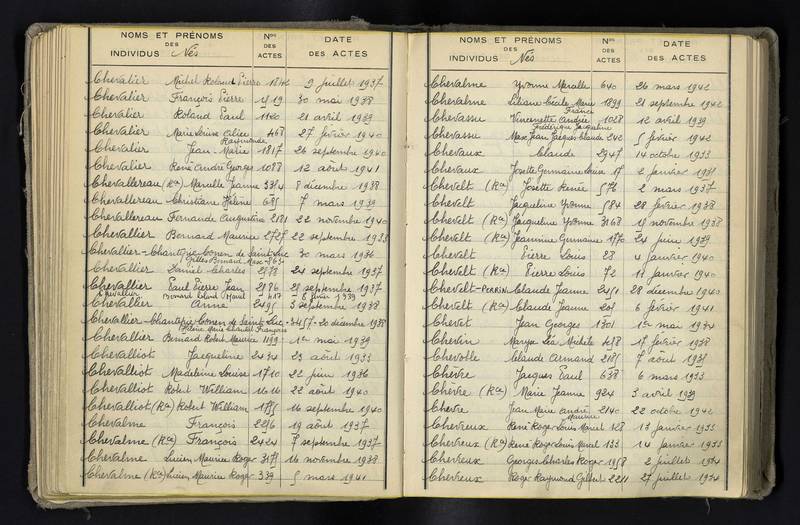 NOMS ET PRÉNOMS DES INDIVIDUS Nés | Nos DES ACTES | DATE DES ACTES
Chevalier Michel Roland Pierre 1842 9 juillet 1937
Chevalier François Pierre 1519 30 mai 1938
Chevalier Roland Paul 1120 21 avril 1939
Chevalier Marie Louise Alice Raymonde 468 27 février 1940
Chevalier Jean Marie 1817 26 septembre 1940
Chevalier René André Georges 1088 12 août 1941
Chevallereau (Ra) Marcelle Jeanne 3324 8 décembre 1938
Chevallereau Christiane Hélène 685 7 mars 1939
Chevallereau Fernande Augustine 2181 22 novembre 1940
Chevallier Bernard Maurice 2727 22 septembre 1933
Chevallier-Chantepie Conen de Saint Luc Gilles Bernard Marc 963 30 mars 1936
Chevallier Daniel Charles 2178 24 septembre 1937
Chevallier Paul Pierre Jean 2186 25 septembre 1937
Chevallier Bernard Roland Marcel 417 8 février 1939
Chevallier Anne 2495 3 septembre 1938
Chevallier-Chantepie Conen de Saint Luc 3457 20 décembre 1938
Hélène Marie François
Chevallier Bernard Robert Maurice 1199 1er mai 1939
Chevalliot Jacqueline 2434 23 août 1933
Chevalliot Madeleine Louise 1710 22 juin 1936
Chevalliot Robert William 1616 22 août 1940
Chevalliot (Ra) Robert William 1755 16 septembre 1940
Chevalme François 2256 19 août 1937
Chevalme (Ra) François 2424 7 septembre 1937
Chevalme Lucien Maurice Roger 3175 16 novembre 1938
Chevalme (Ra) Lucien Maurice Roger 339 5 mars 1941
NOMS ET PRÉNOMS DES INDIVIDUS Nés | Nos DES ACTES | DATE DES ACTES
Chevalme Yvonne Marcelle 640 26 mars 1942
Chevalme Liliane Cécile Marie France 1899 21 septembre 1942
Chevassu Vincenette Andrée Frédérique Jacqueline 1028 12 avril 1939
Chevassu Max Jean Jacques Claude 242 5 février 1942
Chevaux Claude 2947 14 octobre 1933
Chevaux Josette Germaine Louise 17 2 février 1931
Chevelt (Ra) Josette Renée 576 2 mars 1937
Chevelt Jacqueline Yvonne 584 28 février 1938
Chevelt (Ra) Jacqueline Yvonne 3168 15 novembre 1938
Chevelt (Ra) Jeannine Germaine 1770 24 juin 1939
Chevelt Pierre Louis 28 4 janvier 1940
Chevelt (Ra) Pierre Louis 72 11 janvier 1940
Chevelt-Perrin Claude Jeanne 2451 28 décembre 1940
Chevelt (Ra) Claude Jeanne 205 6 février 1941
Chevet Jean Georges 1301 1er mai 1934
Chevin Maryse Léa Michèle 458 17 février 1938
Chevolle Claude Armand 2185 7 août 1931
Chèvre Jacques Paul 638 6 mars 1933
Chèvre (Ra) Marie Jeanne 924 3 avril 1939
Chèvre Jean Marie André Maurice 2140 22 octobre 1942
Chevreux René Roger Louis Marcel 128 13 janvier 1933
Chevreux (Ra) René Roger Louis Marcel 133 14 janvier 1933
Chevreux Georges Charles Roger 1958 2 juillet 1934
Chevreux Roger Raymond Gilbert 2211 27 juillet 1934